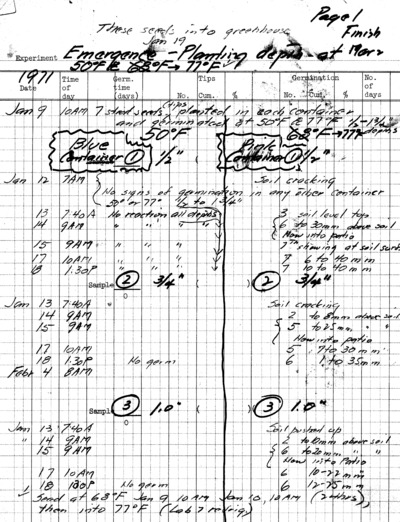 Page 1
Finish
These seeds into greenhouse
Jan 19
Experiment Emergence - Planting depths at
50°F & 68°F → 77°F
1971
Date Time of day Germ. time (days) Tips No. Cum. % Germination No. Cum. % No. of days
Jan 9 10AM 7 start seeds planted in each container
and germinated at 50°F & 77°F ½ - 1½ depths
50°F 68°F → 77°F
Blue Container ① ½" Pink Container ① ½"
Jan 12 7AM Soil cracking
No signs of germination in any other container
50° or 77° ½ to 1 3/4"
13 7:40A No reaction all depths 3 soil level top
14 9AM " " " " 6 to 30mm above soil
Now into patio
15 9AM " " " 7th showing at soil surf
17 10AM " " " 7 6 to 40mm
18 1.30P " " " 7 10 to 40mm
Sample ② 3/4" ② 3/4"
Jan 13 7:40A Soil cracking
14 9AM 2 to 8mm above soil
15 9AM 5 to 25mm " "
Now into patio
17 10AM 5 7 to 30mm
18 1.30P No germ 6 1 to 35mm
Febr 4 8AM
Sample ③ 1.0" ③ 1.0"
Jan 13 7:40A Soil pushed up
" 14 9AM 2 to 10mm above soil
15 9AM 6 to 20mm " "
Now into Patio
17 10AM 6 10-22mm
18 130P No germ 6 12-75mm
Send at 68°F Jan 9, 10AM Jan 10, 10AM
then into 77°F